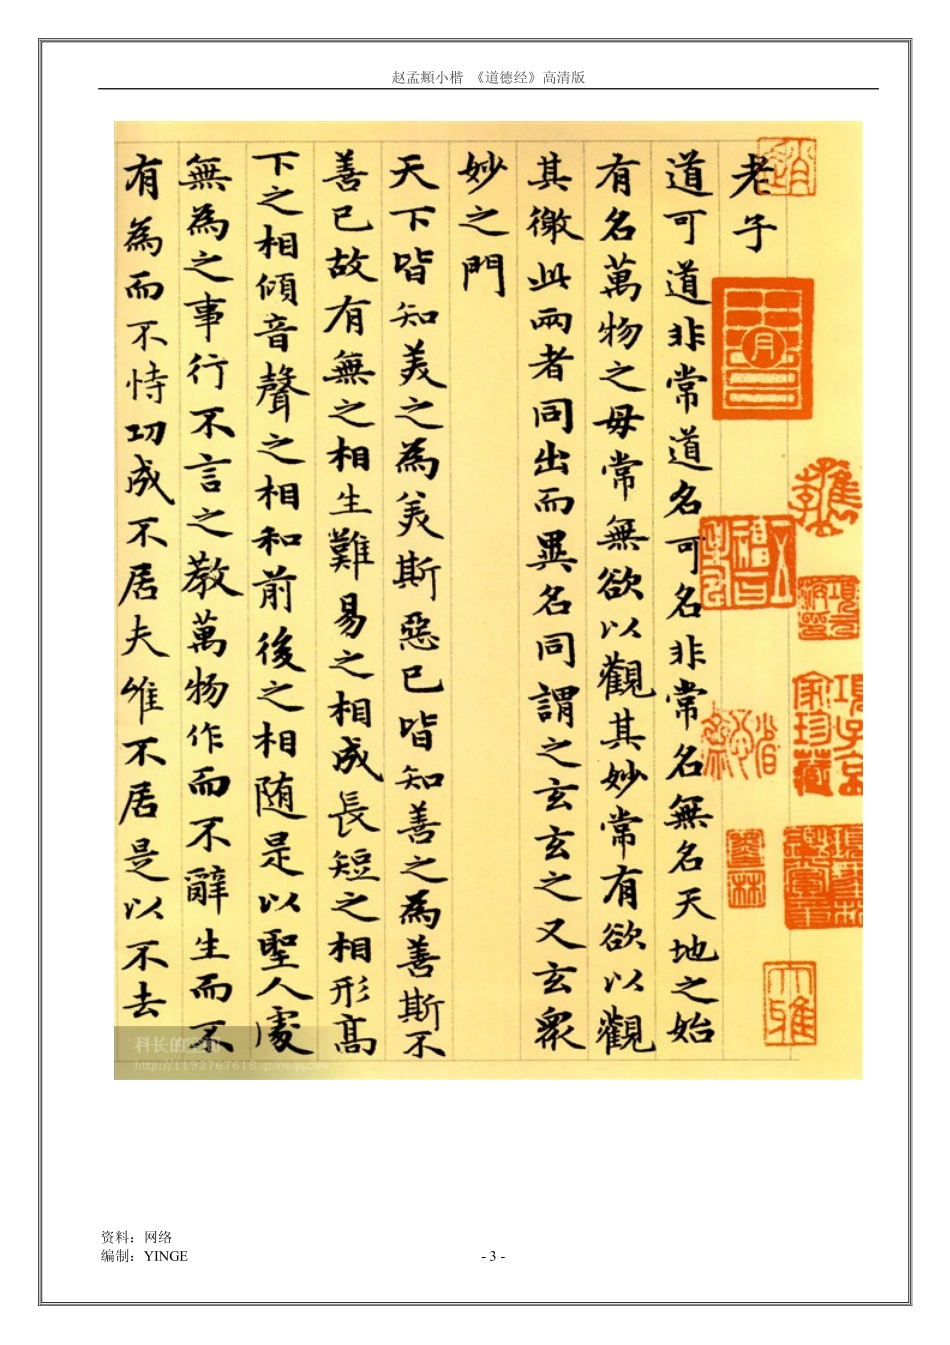 赵孟頫小楷 《道德经》高清版
老子
道可道非常道名可名非常名無名天地之始
有名萬物之母常無欲以觀其妙常有欲以觀
其徼此兩者同出而異名同謂之玄玄之又玄衆
妙之門
天下皆知美之為美斯惡已皆知善之為善斯不
善已故有無之相生難易之相成長短之相形高
下之相傾音聲之相和前後之相随是以聖人處
無為之事行不言之教萬物作而不辭生而不
有為而不恃功成不居夫唯不居是以不去
科长的空间
http://1193767618.qzone.qq.com
资料：网络
编制：YINGE
- 3 -